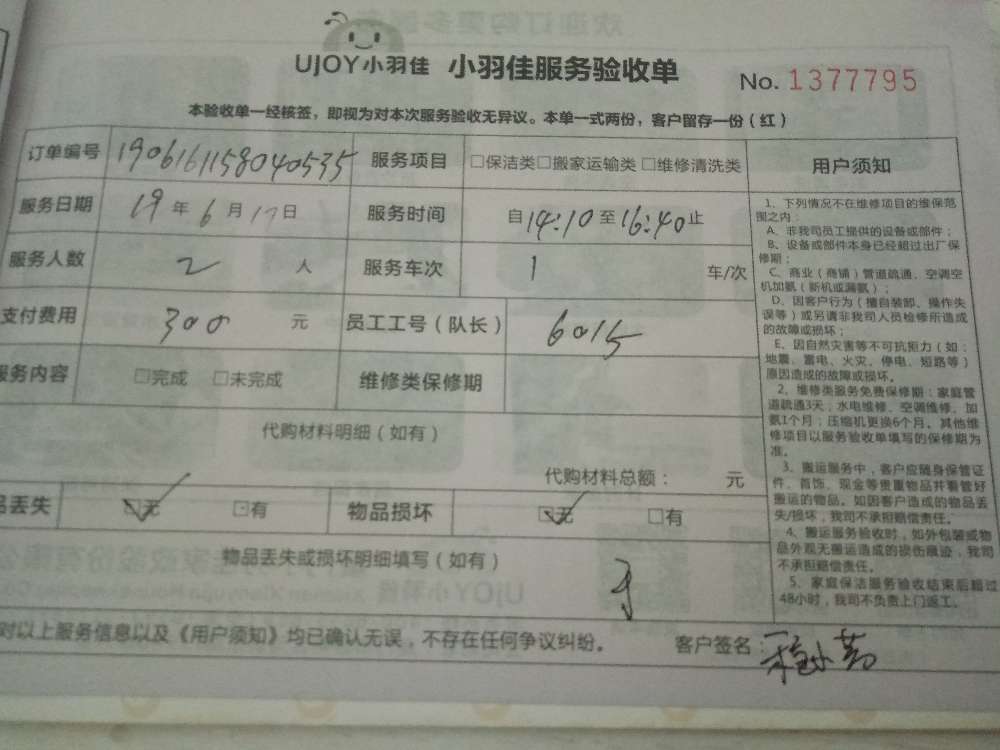 UJOY小羽佳 小羽佳服务验收单 No. 1377795
本验收单一经核签，即视为对本次服务验收无异议。本单一式两份，客户留存一份（红）
订单编号 1906161158040535 服务项目 □保洁类□搬家运输类□维修清洗类
服务日期 19年6月17日 服务时间 自14:10至16:40止
服务人数 2 人 服务车次 1 车/次
支付费用 300 元 员工工号（队长） 6015
服务内容 □完成 □未完成 维修类保修期
代购材料明细（如有）
代购材料总额： 元
品丢失 ☑无 □有 物品损坏 ☑无 □有
物品丢失或损坏明细填写（如有）
对以上服务信息以及《用户须知》均已确认无误，不存在任何争议纠纷。 客户签名：
用户须知
1、下列情况不在维修项目的维保范
围之内：
A、非我司员工提供的设备或部件；
B、设备或部件本身已经超过出厂保
修期；
C、商业（商铺）管道疏通、空调空
机加氨（新机或漏氨）；
D、因客户行为（擅自装卸、操作失
误等）或另请非我司人员检修所造成
的故障或损坏；
E、因自然灾害等不可抗拒力（如：
地震、雷电、火灾、停电、短路等）
原因造成的故障或损坏。
2、维修类服务免费保修期：家庭管
道疏通3天；水电维修、空调维修、加
氨1个月；压缩机更换6个月。其他维
修项目以服务验收单填写的保修期为
准。
3、搬运服务中，客户应随身保管证
件、首饰、现金等贵重物品并看管好
搬运的物品。如因客户造成的物品丢
失/损坏，我司不承担赔偿责任。
4、搬运服务验收时，如外包装或物
品外观无搬运造成的损伤痕迹，我司
不承担赔偿责任。
5、家庭保洁服务验收结束后超过
48小时，我司不负责上门返工。